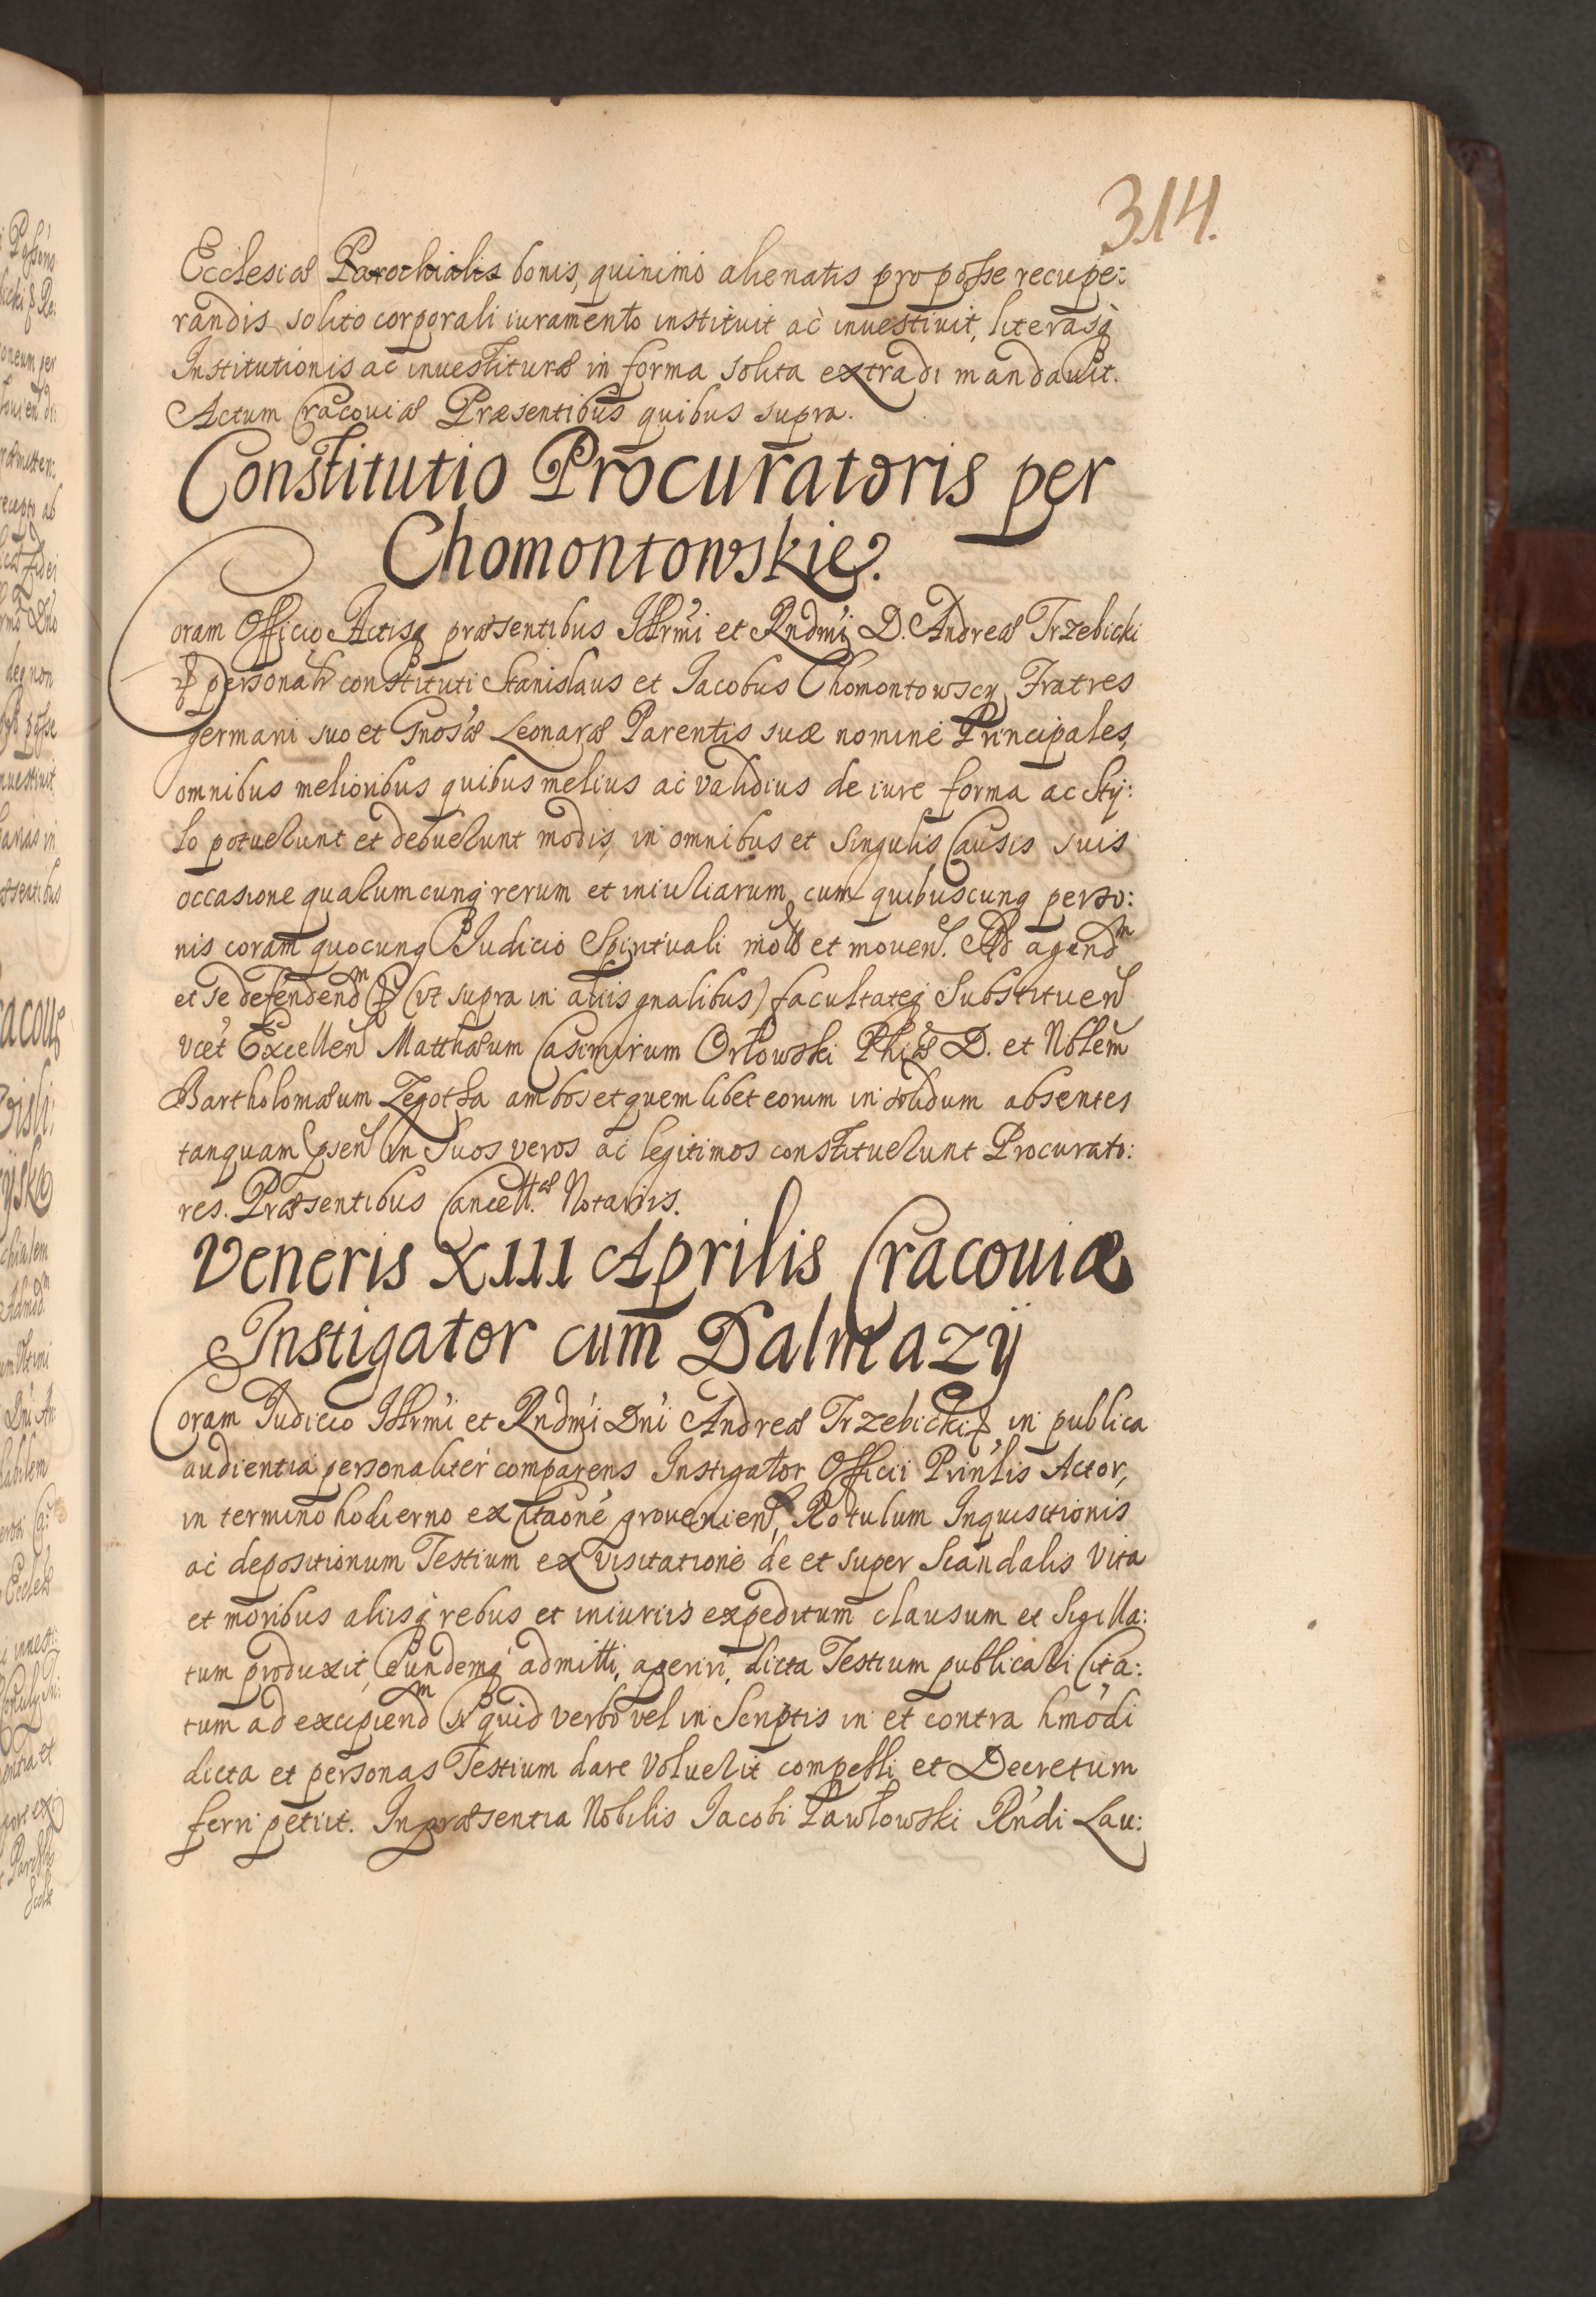 314.
Ecclesiæ Parochialis bonis, quinimò alienatis pro posse recupe:
randis solito corporali iuramento instituit ac inuestiuit, literasq
Institutionis ac inuestituræ in forma solita extradi mandauit.
Actum Cracouiæ Præsentibus quibus supra.
Constitutio Procuratoris per
Chomontowskie.
Coram Officio Actisq præsentibus Illrmi et Rndmi D. Andreæ Trzebicki
& personalr constituti Stanislaus et Jacobus Chomontowscy Fratres
germani suo et Gnosæ Leonaræ Parentis suæ nomine Principales,
omnibus melioribus quibus melius ac validius de iure forma ac Sty:
lo potuerunt et debuerunt modis, in omnibus et Singulis Causis suis
occasione quarumcunq rerum et iniuriarum cum quibuscunq perso:
nis coram quocunq Judicio Spirituali motis et mouen. Ad agendm
et se defendendm & (vt supra in aliis gnalibus) facultateq Substituen
vcet Excellen Matthæum Casimirum Orłowski Phiæ D. et Noblem
Bartholomæum Zegotha ambos et quemlibet eorum in solidum absentes
tanquam psen in Suos veros ac legitimos constituerunt Procurato:
res. Præsentibus Cancell.æ Notariis.
Veneris XIII Aprilis Cracouiæ
Instigator cum Dalmazÿ
Coram Judicio Illrmi et Rndmi Dni Andreæ Trzebicki & in publica
audientia personaliter comparens Instigator Officii Prinlis Actor,
in termino hodierno ex Citaone prouenien, Rotulum Inquisitionis
ac depositionum Testium ex visitatione de et super Scandalis Vita
et moribus aliisq rebus et iniuriis expeditum clausum et Sigilla:
tum produxit, Eundemq admitti, aperiri, dicta Testium publicari Cita:
tum ad excipiendm si quid verbo vel in Scriptis in et contra hmodi
dicta et personas Testium dare Voluerit compelli et Decretum
ferri petiit. In præsentia Nobilis Jacobi Pawłowski Rndi Lau: